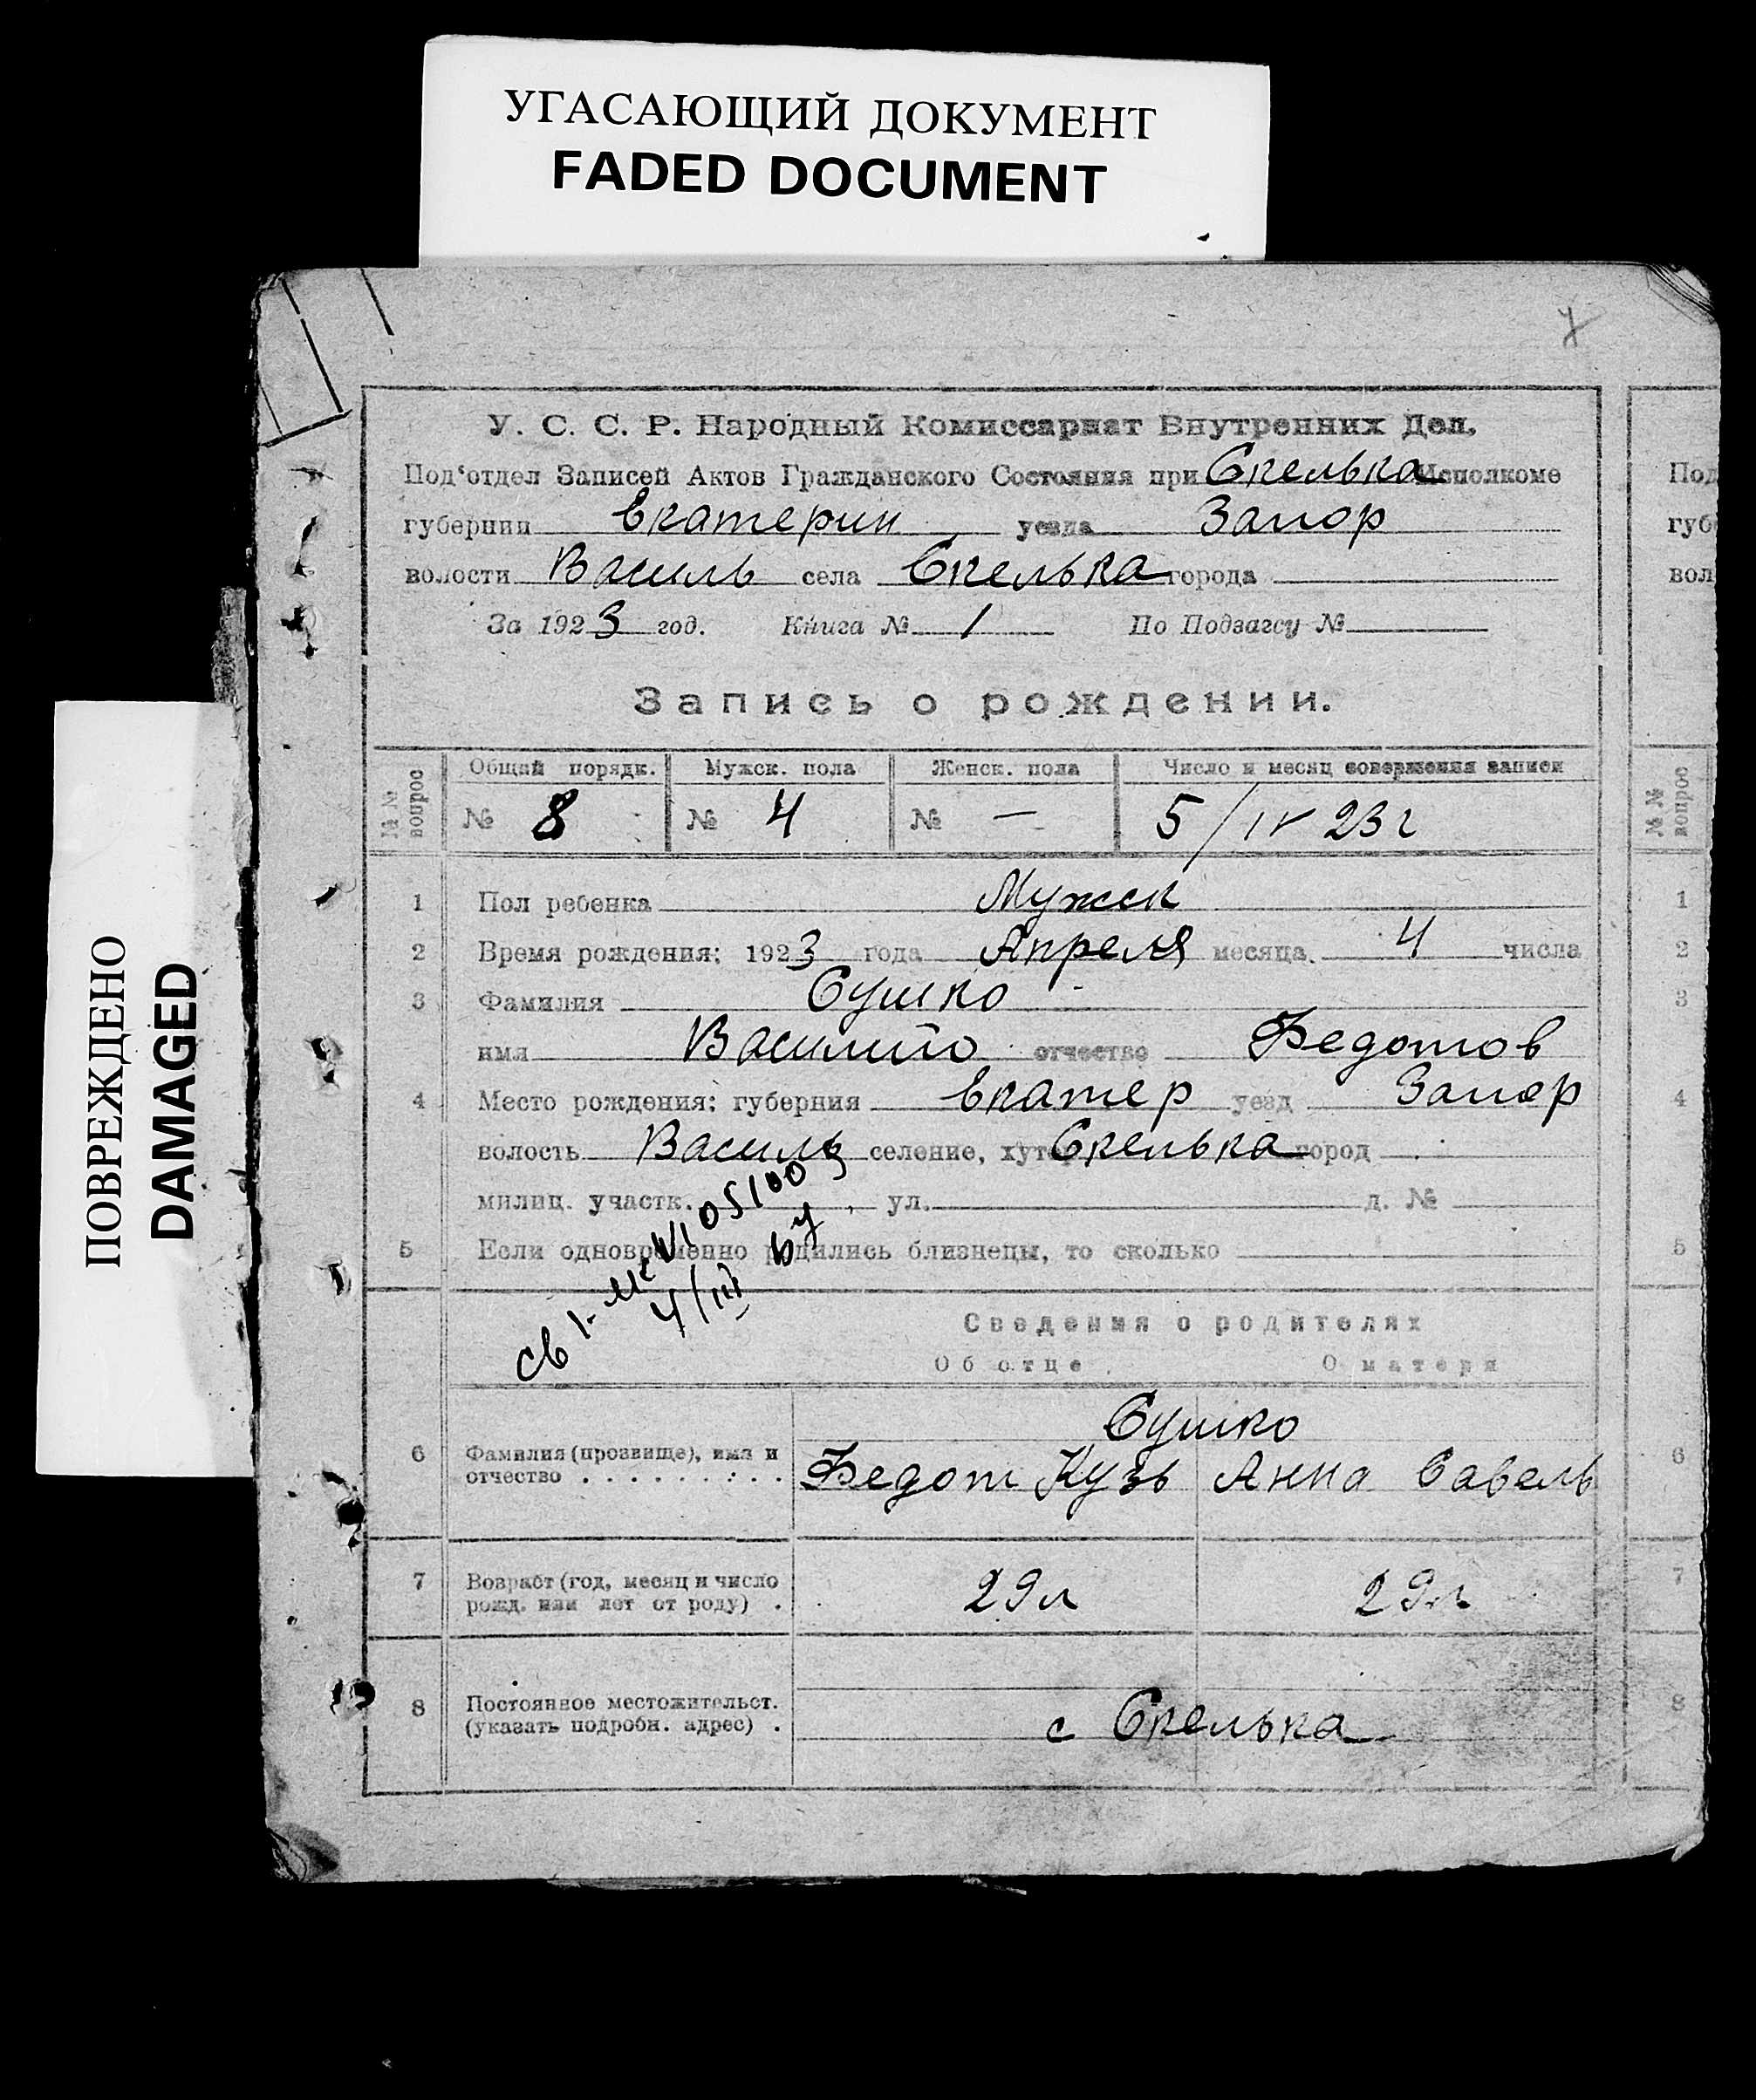 УГАСАЮЩИЙ ДОКУМЕНТ
FADED DOCUMENT
ПОВРЕЖДЕНО
DAMAGED
У. С. С. Р. Народный Комиссариат Внутренних Дел.
Под‘отдел Записей Актов Гражданского Состояния при Скелька Исполкоме
губернии Екатерин уезда Запор
волости Василь села Скелька города
За 1923 год. Книга № 1 По Подзагсу №
Запись о рождении.
№№ вопрос Общий порядк. Мужск. пола Женск. пола Число и месяц совершения записи
№ 8 № 4 № — 5/IV 23 г
1 Пол ребенка Мужск
2 Время рождения: 1923 года Апреля месяца 4 числа
3 Фамилия Сушко
имя Василий отчество Федотов
4 Место рождения: губерния Екатер уезд Запор
волость Василь селение, хутор Скелька город
милиц. участк. ул. д. №
5 Если одновременно родились близнецы, то сколько
4/III
Сведения о родителях
Об отце О матери
Сушко
6 Фамилия (прозвище), имя и
отчество Федот Кузь Анна Савель
7 Возраст (год, месяц и число
рожд. или лет от роду) 29 л 29 л
8 Постоянное местожительст.
(указать подробн. адрес) с Скелька
Под
губ
вол
№№ вопрос
1
2
3
4
5
6
7
8